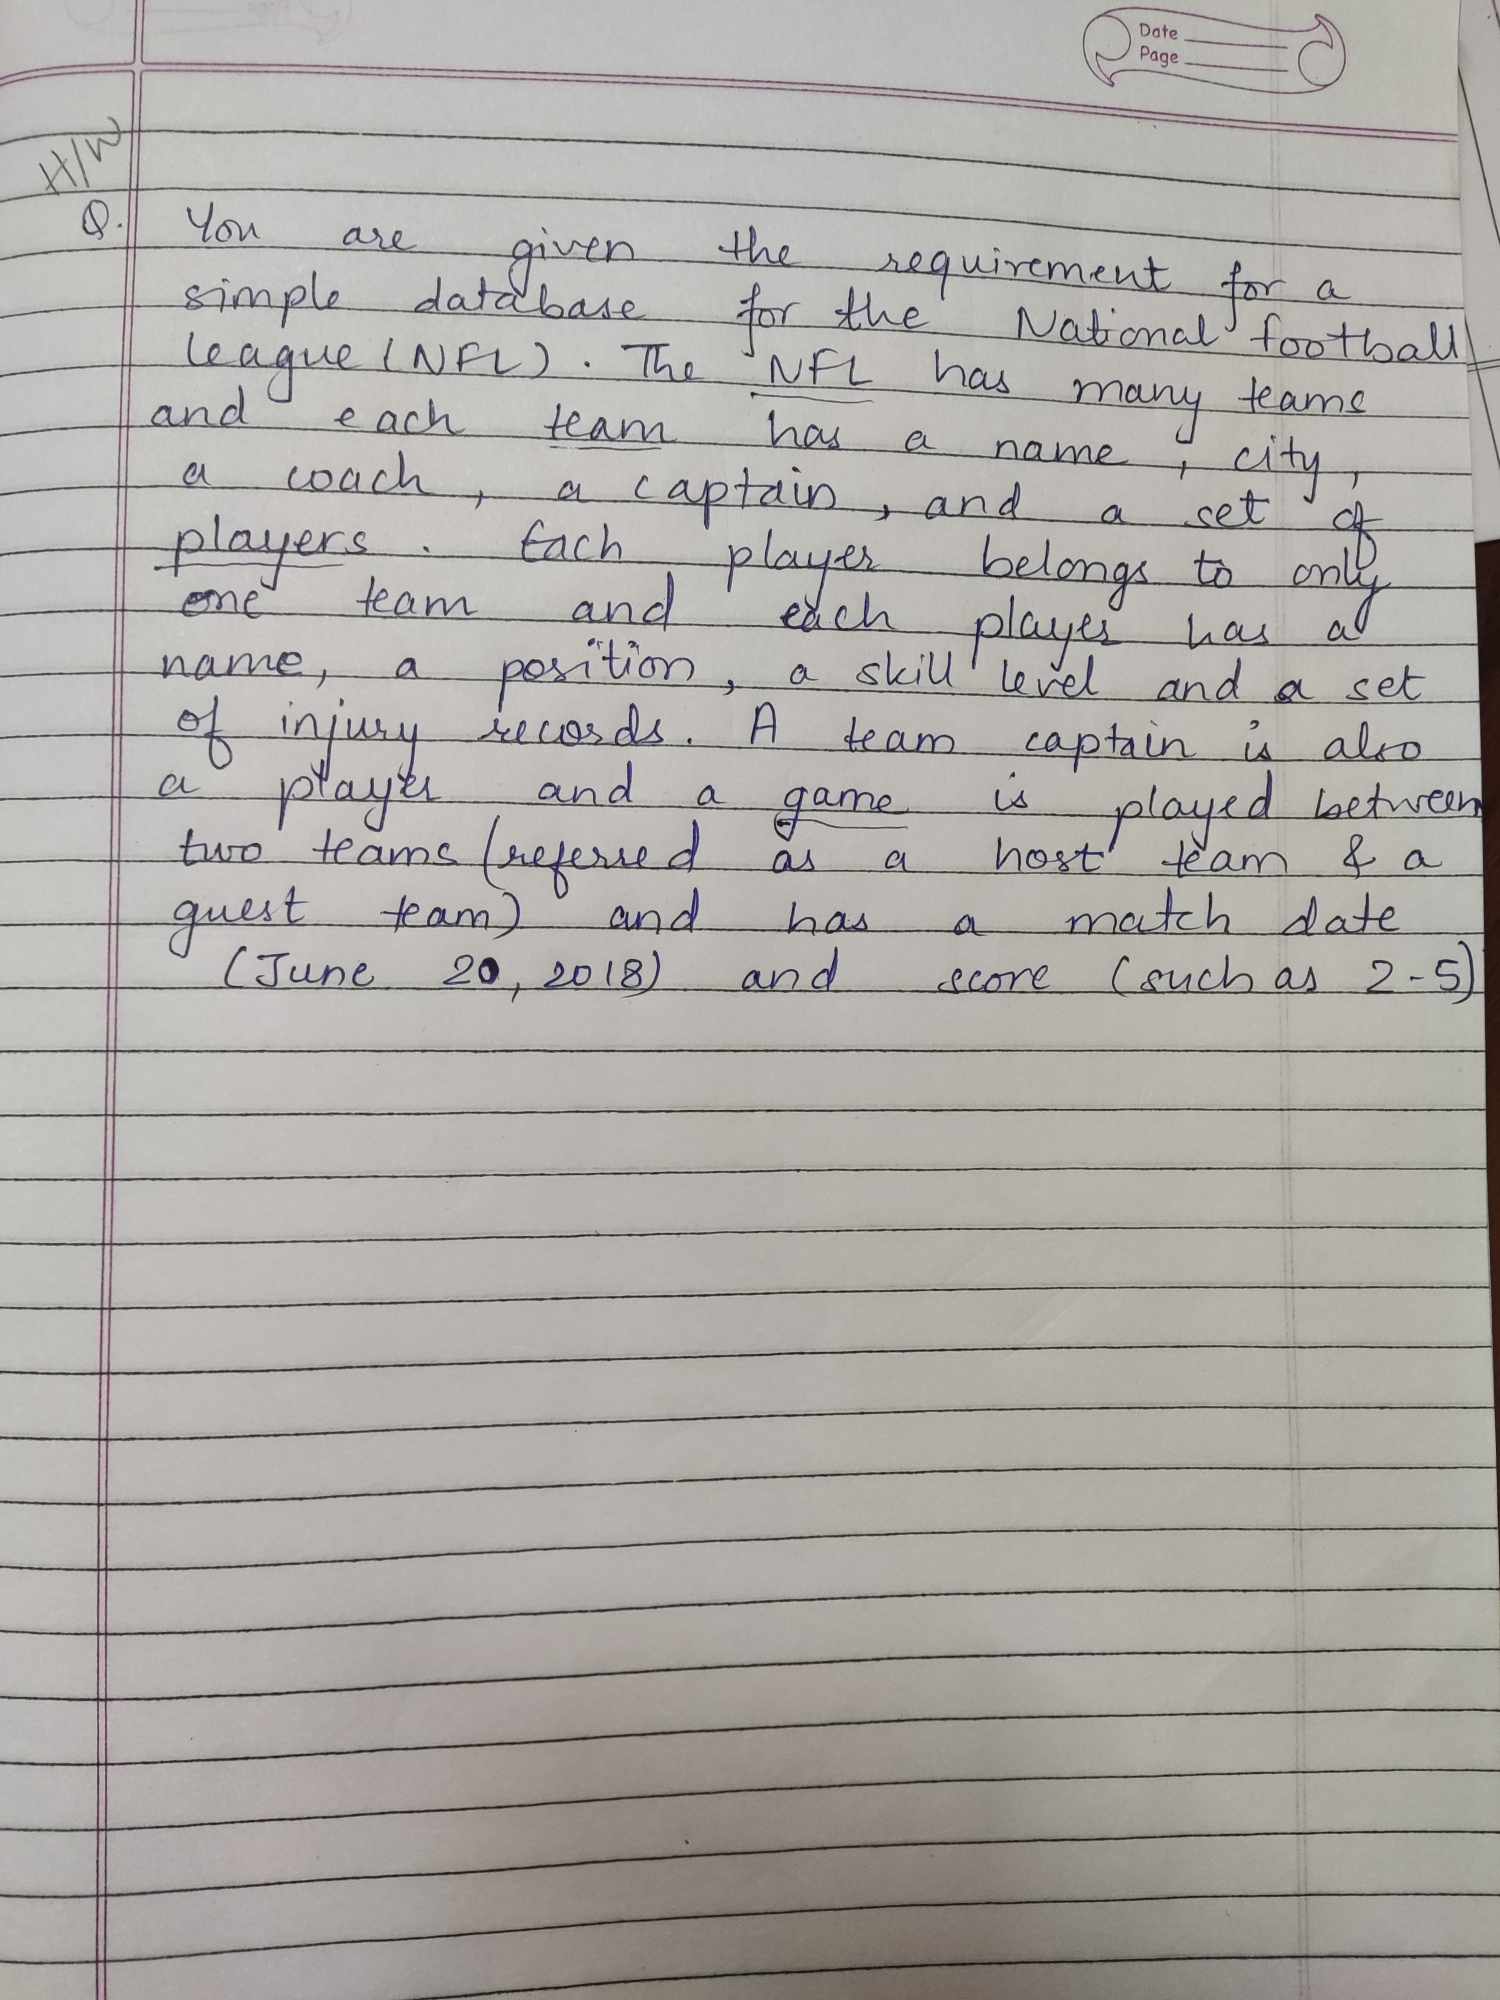 Date
Page
H/W
Q. You are given the requirement for a
simple database for the National football
league (NFL). The NFL has many teams
and each team has a name, city,
a coach, a captain, and a set of
players. Each player belongs to only
one team and each player has a
name, a position, a skill level and a set
of injury records. A team captain is also
a player and a game is played between
two teams (referred as a host team & a
guest team) and has a match date
(June 20, 2018) and score (such as 2-5)